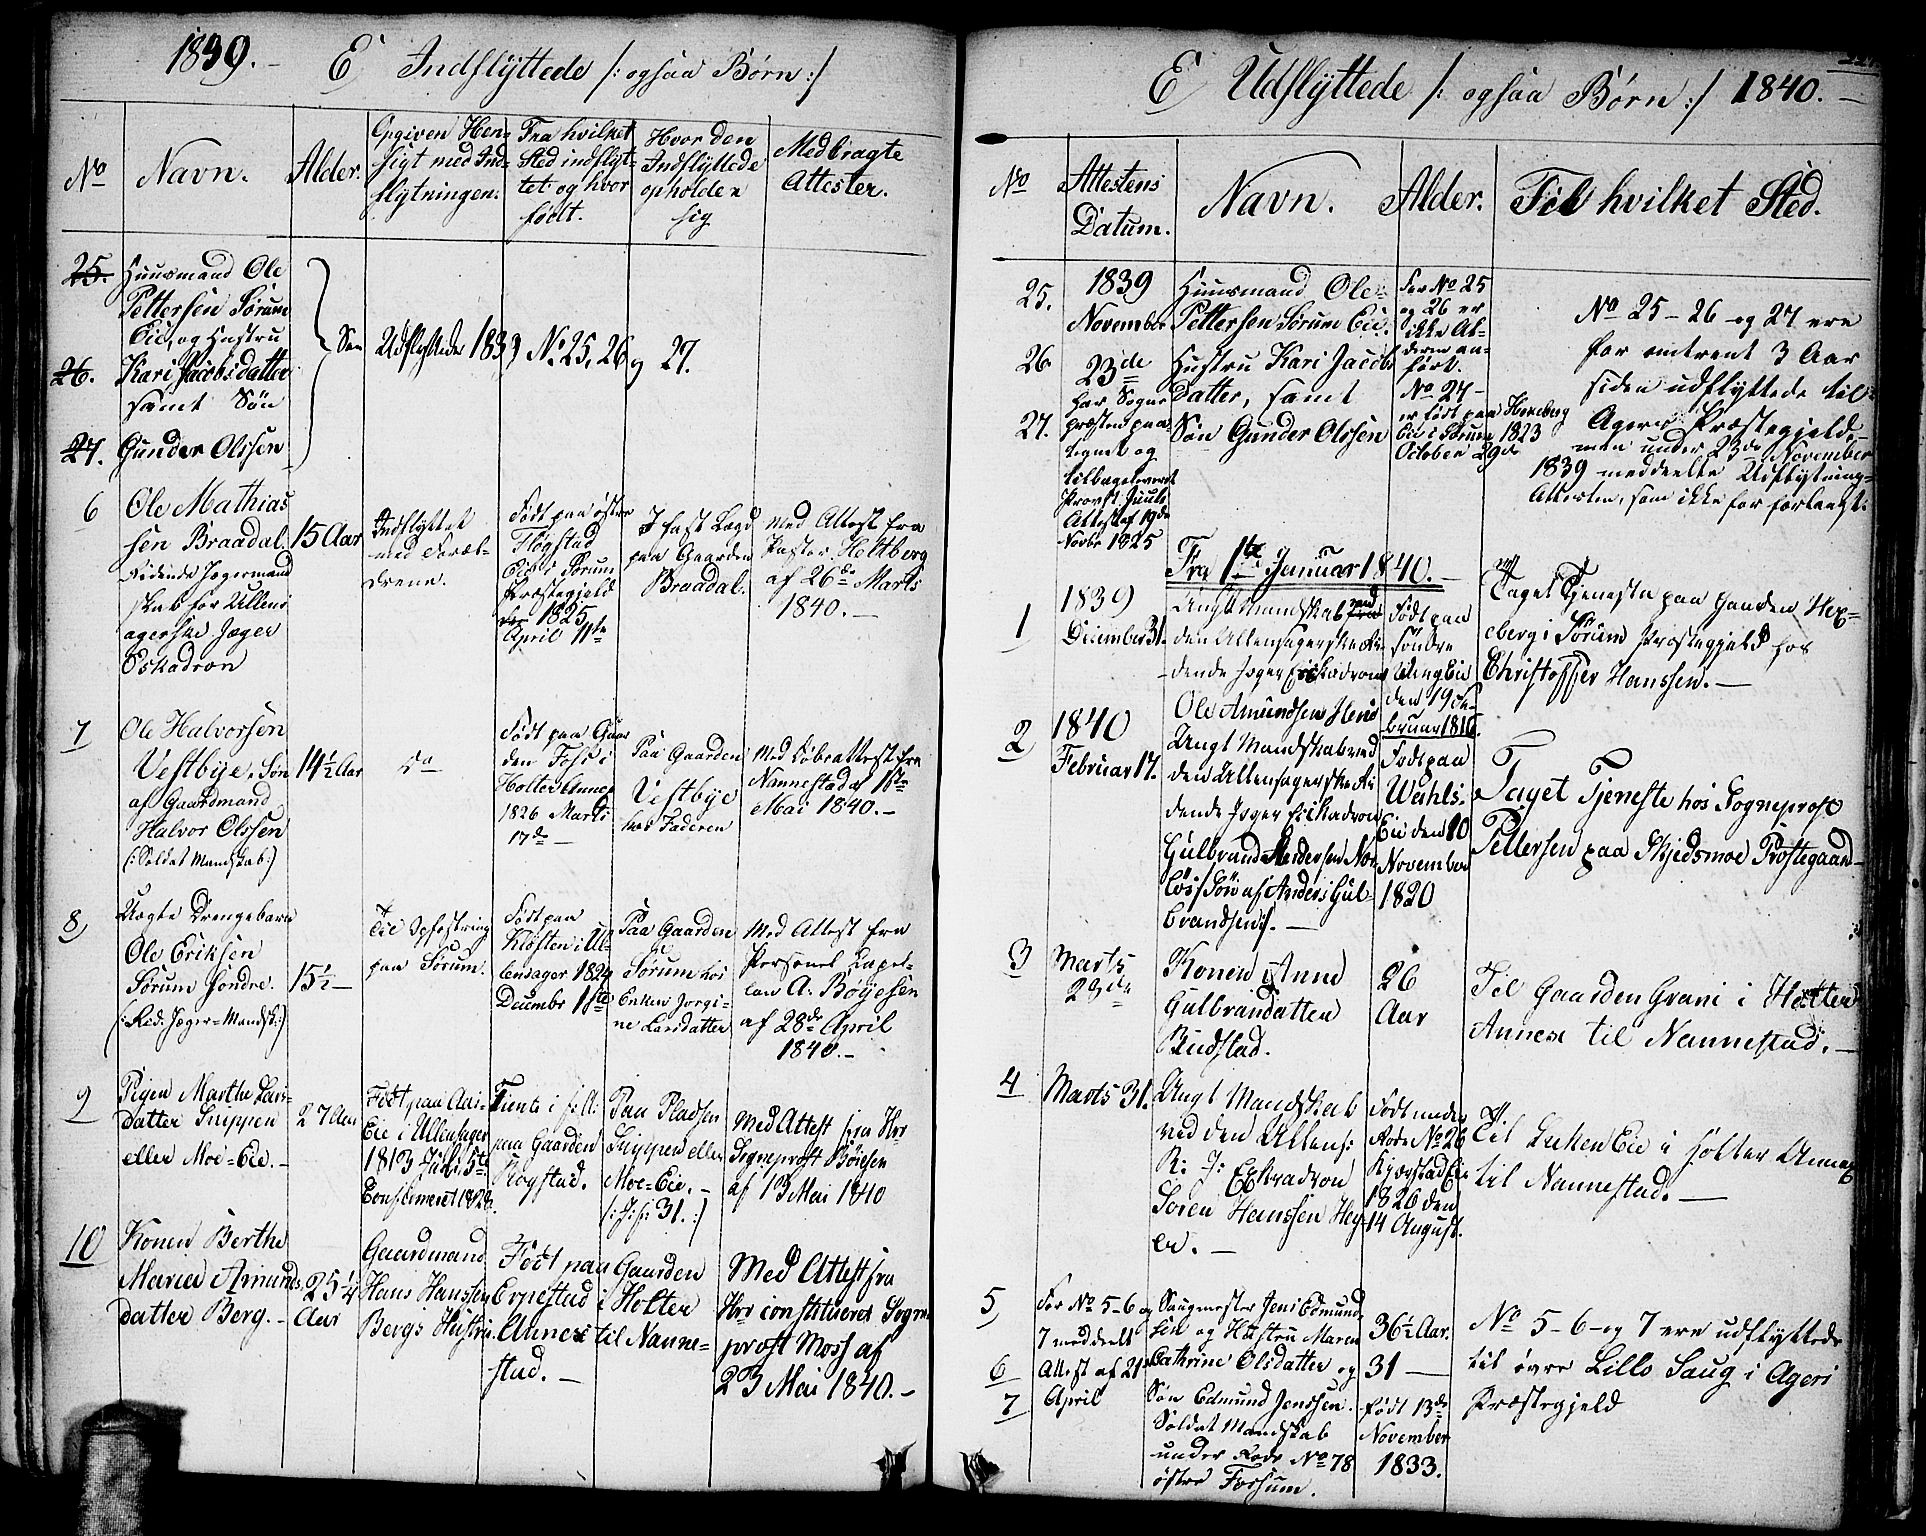 1839. E Indflyttede /: ogsaa Børn :/
No
Navn.
Alder.
Opgiven Hen-
sigt med Ind-
flytningen.
Fra hvilket
Sted indflyt-
tet og hvor
født.
Hvor den
Indflyttede
opholder
sig
Medbragte
Attester.
25.
Huusmand Ole
Pettersen Sørum
Eie, og Hustru
26.
Kari Jacobsdatter
samt Søn
27.
Gunder Olssen
See Udflyttede 1839 No 25, 26 og 27.
6
Ole Mathias
sen Braadal.
Ridende Jægermand
skab for Ullens
agerske Jæger
Eskadron
15 Aar
Indflyttet
med Foræl-
drene.
Født paa østre
Fløgstad
Eie i Sørum
Præstegjeld
1825
April 11te
I fast Lægd
paa Gaarden
Braadal.
Med Attest fra
Pastor Heltberg
af 26de Marts
1840.
7
Ole Halvorssen
Vestbye, Søn
af Gaardmand
Halvor Olssen
(: Soldat Mandskab :)
14½ Aar
do
Født paa Gaar
den Foss i
Holter Annex
1826 Marts
17de
Paa Gaarden
Vestbye
hos Faderen
Med Døbeattest fra
Nannestad af 1ste
Mai 1840.
8
Uægte Drengebarn
Ole Eriksen
Sørum søndre.
(: Rid. Jæger-Mandsk. :)
15½
Til Opfostring
paa Sørum.
Født paa
Kløften i Ul-
lensager 1824
Decembr 1ste
Paa Gaarden
Sørum hos
Enken Jørgi-
ne Larsdatter
Med Attest fra
Personel Capel-
lan A. Bøyesen
af 28de April
1840.
9
Pigen Marthe Lars-
datter Snippen
eller Moe-Eie.
27 Aar
Født paa
Eie i Ullensager
1813 Juli 5te
Confirmeret 1828.
Tiente i
paa Gaarden
Rogstad.
Paa Pladsen
Snippen eller
Moe-Eie.
31. :)
Med Attest fra Hr
Sogneprost Bøiesen
af 13 Mai 1840
10
Konen Berthe
Maria Amunds
datter Berg.
25¼
Aar
Gaardmand
Hans Hanssen
Bergs Hustru
Født paa Gaarden
Erpestad i Holter
Annex til Nanne-
stad.
Med Attest fra
Hr constitueret Sogne
præst Moss af
23 Mai 1840.
E Udflyttede /: ogsaa Børn :/ 1840.
No
Attestens
Datum.
Navn.
Alder.
Til hvilket Sted.
25.
26
27.
1839
November
23de
har Sogne
præsten paa-
tegnet og
tilbageleveret
Provst Juuls
Attest af 19de
Novbr 1825
Huusmand Ole
Pettersen Sørum Eie.
Hustru Kari Jacobs
Datter, samt
Søn Gunder Olssen
For No 25
og 26 er
ikke Al-
deren an-
ført.
No 27
er født paa Hexeberg
Eie i Sørum 1823
October 29de
No 25-26 og 27 ere
for omtrent 3 Aar
siden udflyttede til
Agers Præstegjeld,
men under 23de November
1839 meddeelte Udflytnings-
Attester, som ikke før forlangt.
Fra 1ste Januar 1840.
1
1839
December 31.
Ungt Mandskab ved
den Ullensagerske Ri
dende Jæger Eskadron
Ole Amundsen
Født paa
søndre
Eie
den 19 Fe-
bruar 1816.
Taget Tjeneste paa Gaarden Hex-
eberg i Sørum Præstegjeld hos
Christoffer Hanssen.
2
1840
Februar 17.
Ungt Mandskab ved
den Ullensagerske Ri
dende Jæger Eskadron
Gulbrand Andersen
Søn af Anders Gul-
brandsen.
Født paa
Wahls-
Eie den 10
November
1820
Taget Tjeneste hos Sogneprost
Pettersen paa Skjedsmoe Prøstegaard
3
Marts
23de
Konen Anne
Gulbransdatter
Rudstad.
26
Aar
Til Gaarden Grani i Holter
Annex til Nannestad.
4
Marts 31.
Ungt Mandskab
ved den Ullens:
R: J: Eskadron
Søren Hanssen Hey
er.
Født under
Rode No 26
Kjærstad Eie
1826 den
14 August.
Til Lukken Eie i Holter Annex
til Nannestad.
5
6
7
For No 5-6 og
7 meddeelt
Attest af 21
April
Saugmester Jens Edmund
sen og Hustru Maren
Cathrine Olsdatter og
Søn Edmund Jenssen.
Soldat Mandskab
under Rode No 78
østre Forsum.
36½ Aar.
31
født 13de
November
1833.
No 5-6 og 7 ere udflyttede
til øvre Lillo Saug i Agers
Præstegjeld